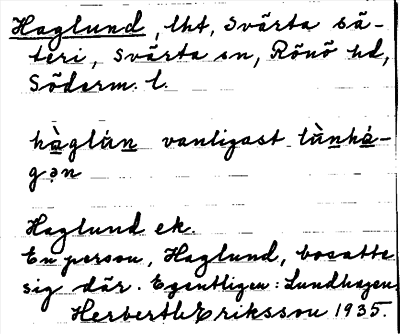 Haglund, lht, Svärta sä-
teri, Svärta sn, Rönö hd,
Söderm. l.
hàglún vanligast lùnhá-
gən
Haglund ek.
En person, Haglund, bosatte
sig där. Egentligen: Lundhagen.
Herberth Eriksson 1935.